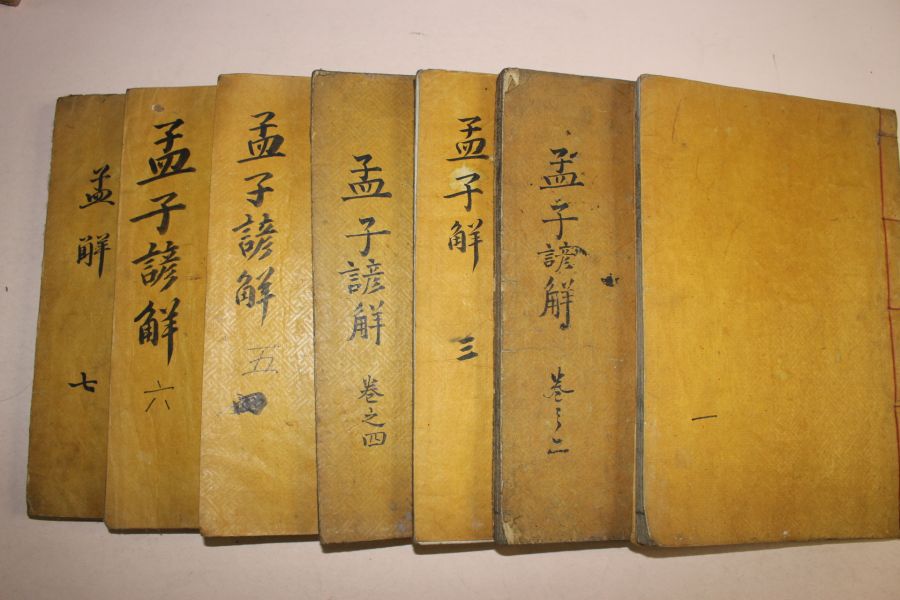 一
孟子諺觧
卷之二
孟子觧
三
孟子諺觧
卷之四
孟子諺觧
五
孟子諺觧
六
孟觧
七